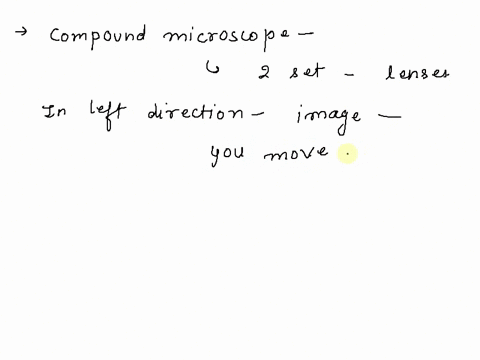 → Compound microscope –
↳ 2 set – lenses
In left direction – image –
you move